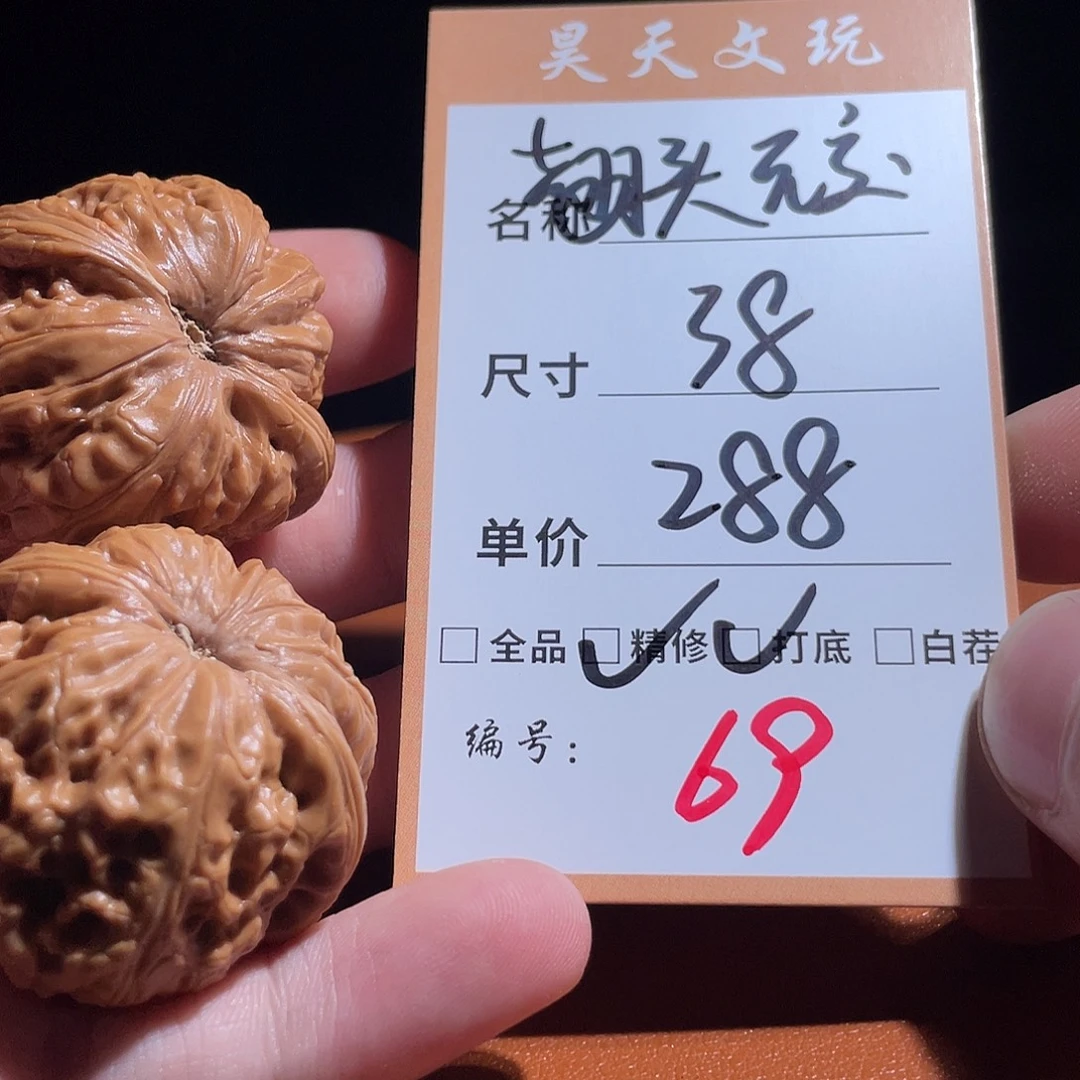 昊天文玩
名称 翘头元交
尺寸 38
单价 288
□ 全品 ☑ 精修 ☑ 打底 □ 白茬
编号: 69